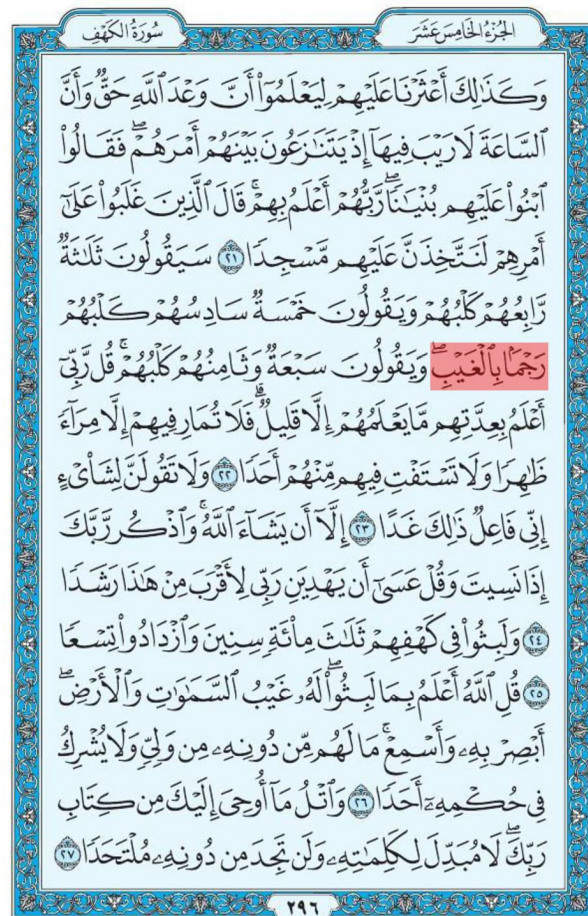 الجزء الخامس عشر
سورة الكهف
وَكَذَٰلِكَ أَعْثَرْنَا عَلَيْهِمْ لِيَعْلَمُوٓا۟ أَنَّ وَعْدَ ٱللَّهِ حَقٌّ وَأَنَّ
ٱلسَّاعَةَ لَا رَيْبَ فِيهَآ إِذْ يَتَنَٰزَعُونَ بَيْنَهُمْ أَمْرَهُمْ ۖ فَقَالُوا۟
ٱبْنُوا۟ عَلَيْهِم بُنْيَٰنًا ۖ رَّبُّهُمْ أَعْلَمُ بِهِمْ ۚ قَالَ ٱلَّذِينَ غَلَبُوا۟ عَلَىٰٓ
أَمْرِهِمْ لَنَتَّخِذَنَّ عَلَيْهِم مَّسْجِدًا ٢١ سَيَقُولُونَ ثَلَٰثَةٌ
رَّابِعُهُمْ كَلْبُهُمْ وَيَقُولُونَ خَمْسَةٌ سَادِسُهُمْ كَلْبُهُمْ
رَجْمًۢا بِٱلْغَيْبِ ۖ وَيَقُولُونَ سَبْعَةٌ وَثَامِنُهُمْ كَلْبُهُمْ ۚ قُل رَّبِّىٓ
أَعْلَمُ بِعِدَّتِهِم مَّا يَعْلَمُهُمْ إِلَّا قَلِيلٌ ۗ فَلَا تُمَارِ فِيهِمْ إِلَّا مِرَآءً
ظَٰهِرًا وَلَا تَسْتَفْتِ فِيهِم مِّنْهُمْ أَحَدًا ٢٢ وَلَا تَقُولَنَّ لِشَا۟ىْءٍ
إِنِّى فَاعِلٌ ذَٰلِكَ غَدًا ٢٣ إِلَّآ أَن يَشَآءَ ٱللَّهُ ۚ وَٱذْكُر رَّبَّكَ
إِذَا نَسِيتَ وَقُلْ عَسَىٰٓ أَن يَهْدِيَنِ رَبِّى لِأَقْرَبَ مِنْ هَٰذَا رَشَدًا
٢٤ وَلَبِثُوا۟ فِى كَهْفِهِمْ ثَلَٰثَ مِا۟ئَةٍ سِنِينَ وَٱزْدَادُوا۟ تِسْعًا
٢٥ قُلِ ٱللَّهُ أَعْلَمُ بِمَا لَبِثُوا۟ ۖ لَهُۥ غَيْبُ ٱلسَّمَٰوَٰتِ وَٱلْأَرْضِ ۖ
أَبْصِرْ بِهِۦ وَأَسْمِعْ ۚ مَا لَهُم مِّن دُونِهِۦ مِن وَلِىٍّ وَلَا يُشْرِكُ
فِى حُكْمِهِۦٓ أَحَدًا ٢٦ وَٱتْلُ مَآ أُوحِىَ إِلَيْكَ مِن كِتَابِ
رَبِّكَ ۖ لَا مُبَدِّلَ لِكَلِمَٰتِهِۦ وَلَن تَجِدَ مِن دُونِهِۦ مُلْتَحَدًا ٢٧
٢٩٦